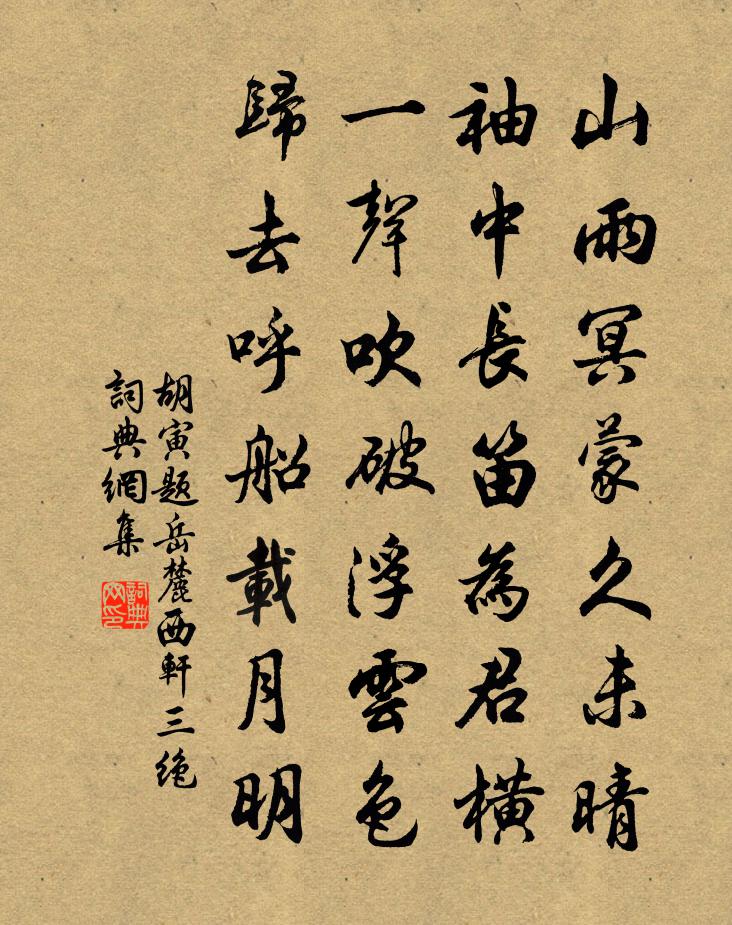 山雨冥蒙久未晴
袖中長笛為君橫
一聲吹破浮雲色
歸去呼船載月明
胡寅题岳麓西軒三絶
詞典網集
詞典网印